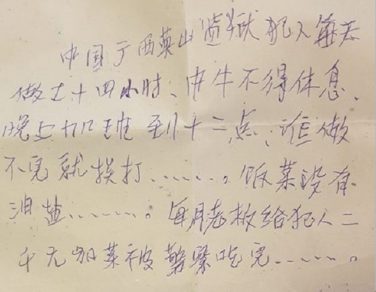 中国广西英山监狱犯人每天
做工十四小时、中午不得休息、
晚上加班到十二点、谁做
不完就挨打……。饭菜没有
油盐……。每月老板给犯人二
千元加菜被警察吃完……。